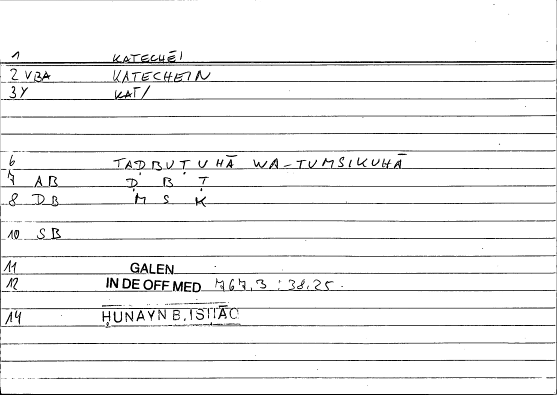 1 KATECHĒI
2 VBA KATECHEIN
3 Y KAT/
6 TAḌBUṬUHĀ WA-TUMSIKUHĀ
7 AB Ḍ B Ṭ
8 DB M S K
10 SB
11 GALEN
12 IN DE OFF MED 767,3 : 38.25.
14 ḤUNAYN B. ISḤĀQ